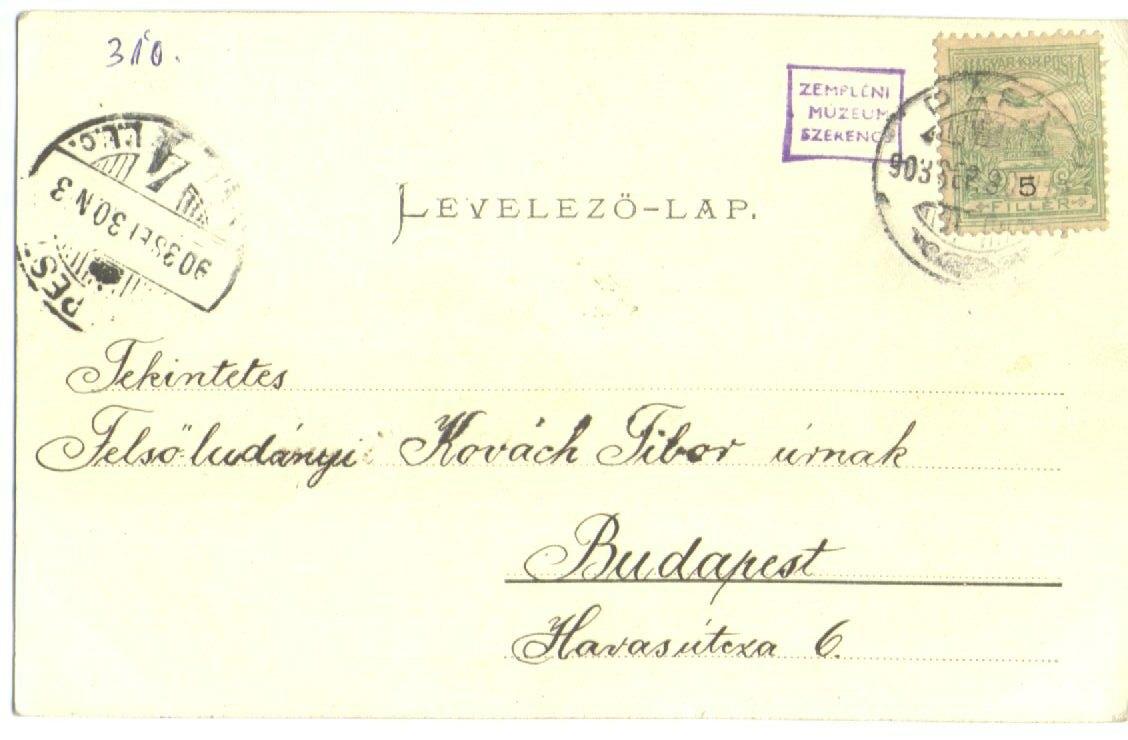 310.
ZEMPLÉNI
MÚZEUM
SZERENCS
MAGYAR KIR. POSTA
5
FILLÉR
903 SEP
903 SEP 30 N 3
LEVELEZŐ-LAP.
Tekintetes
Felsőludányi Kovách Tibor úrnak
Budapest
Havasútcza 6.